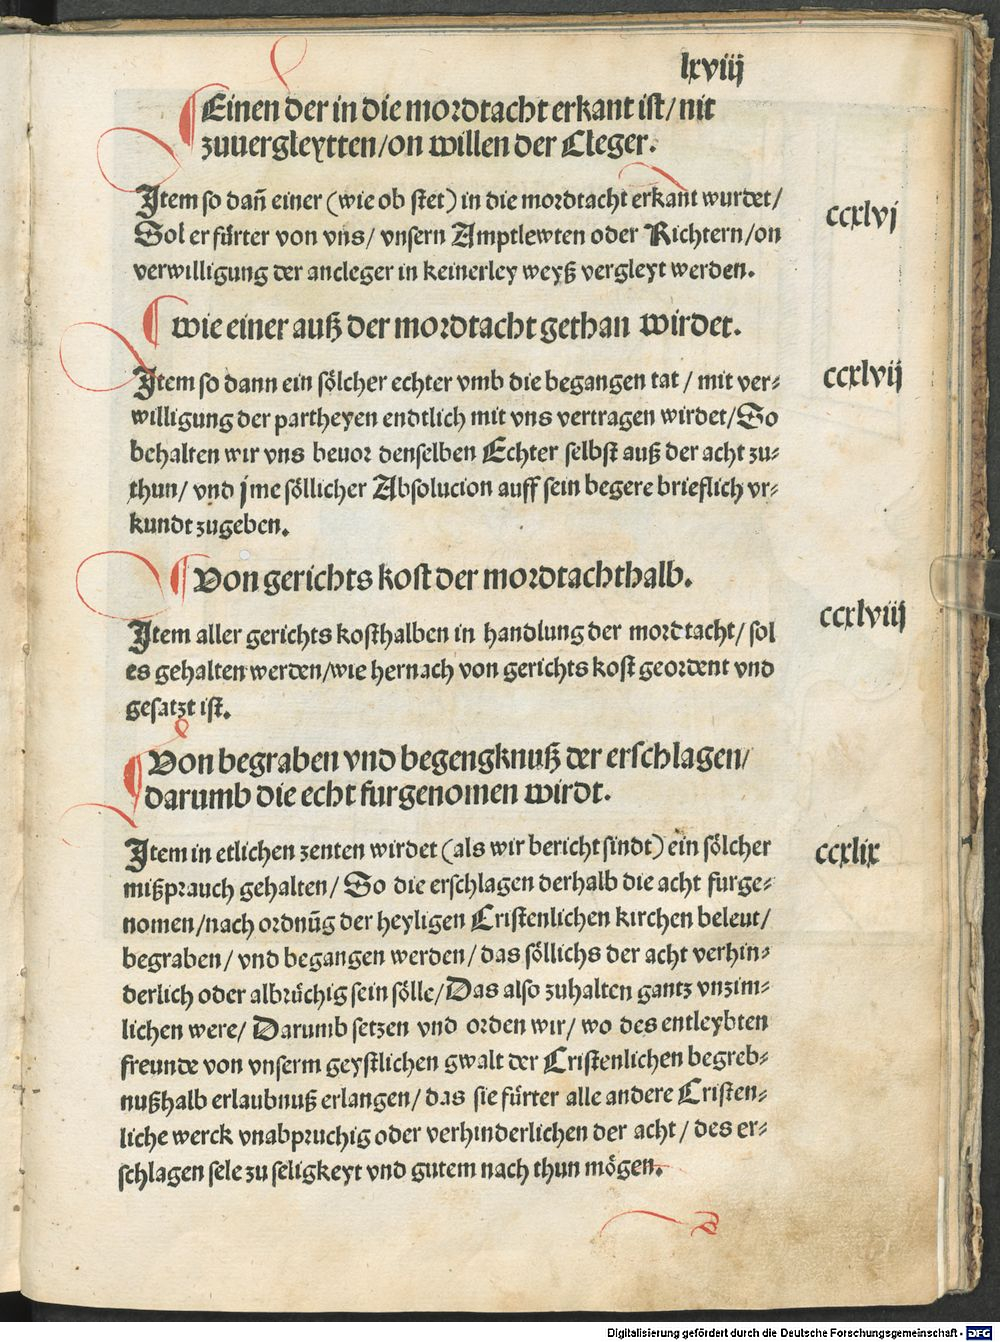 lxviij
Einen der in die mordtacht erkant ist/ nit
zuuergleytten/on willen der Cleger.
Item so dañ einer (wie ob stet) in die mordtacht erkant wurdet/
ccxlvj
Sol er fürter von vns/ vnsern Amptlewten oder Richtern/on
verwilligung der ancleger in keinerley weyß vergleyt werden.
wie einer auß der mordtacht gethan wirdet.
Item so dann ein sölcher echter vmb die begangen tat / mit ver⸗
ccxlvij
willigung der partheyen endtlich mit vns vertragen wirdet/So
behalten wir vns beuor denselben Echter selbst auß der acht zu⸗
thun/ vnd jme söllicher Absolucion auff sein begere brieflich vr⸗
kundt zugeben.
Von gerichts kost der mordtachthalb.
ccxlviij
Item aller gerichts kosthalben in handlung der mordtacht/ sol
es gehalten werden/wie hernach von gerichts kost geordent vnd
gesatzt ist.
Von begraben vnd begengknuß der erschlagen/
darumb die echt furgenomen wirdt.
Item in etlichen zenten wirdet (als wir bericht sindt) ein sölcher
ccxlix
mißprauch gehalten/ So die erschlagen derhalb die acht furge⸗
nomen/nach ordnūg der heyligen Cristenlichen kirchen beleut/
begraben/ vnd begangen werden/ das söllichs der acht verhin⸗
derlich oder albrüchig sein sölle/Das also zuhalten gantz vnzim⸗
lichen were/ Darumb setzen vnd orden wir/ wo des entleybten
freunde von vnserm geystlichen gwalt der Cristenlichen begreb⸗
nußhalb erlaubnuß erlangen/ das sie fürter alle andere Cristen⸗
liche werck vnabpruchig oder verhinderlichen der acht / des er⸗
schlagen sele zu seligkeyt vnd gutem nach thun mögen.
Digitalisierung gefördert durch die Deutsche Forschungsgemeinschaft - DFG